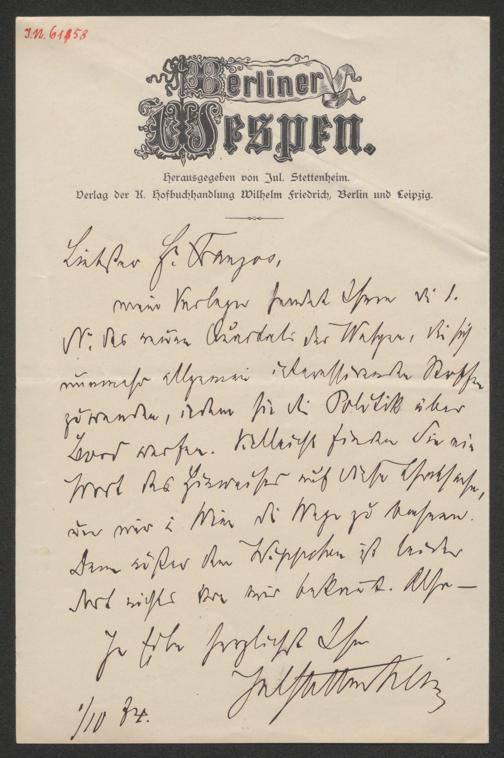 I.N. 61958
Berliner
Wespen.
Herausgegeben von Jul. Stettenheim.
Verlag der K. Hofbuchhandlung Wilhelm Friedrich, Berlin und Leipzig.
Liebster Hr. Franzos,
mein Verleger sendet Ihnen die 1.
Nr. des neuen Quartals der Wespen, die sich
nunmehr allgemein interessirenden Stoffen
zuwenden, indem sie die Politik über
Bord werfen. Vielleicht finden Sie ein
Wort des Hinweises auf diese Thatsache,
um mir i Wien die Wege zu bahnen.
Denn außer den Wippchen ist leider
dort nichts von mir bekannt. Also —
In Eile herzlichst Ihr
Jul Stettenheim
1/10 84.